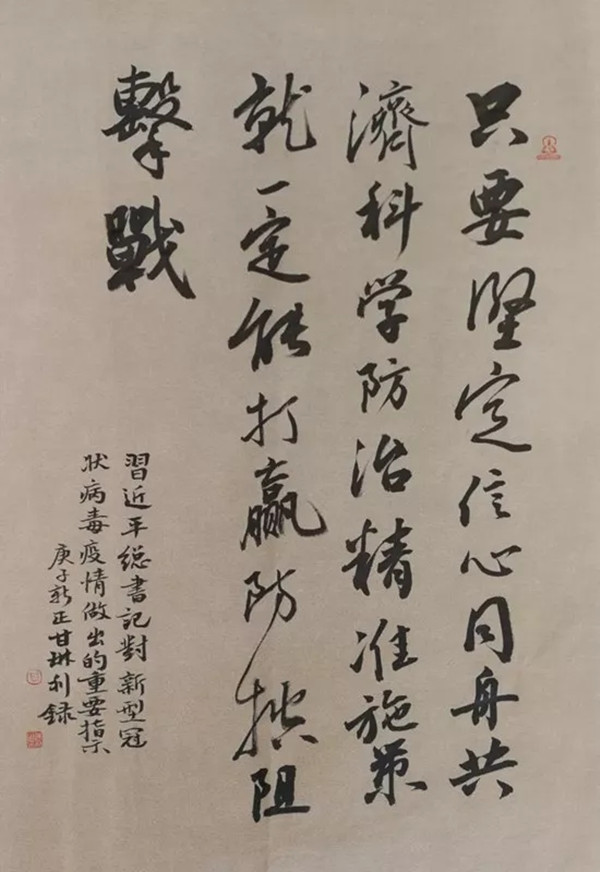 只要堅定信心同舟共
濟科学防治精准施策
就一定能打贏防控阻
擊戰
習近平総書記對新型冠
状病毒疫情做出的重要指示
庚子新正甘琳利録